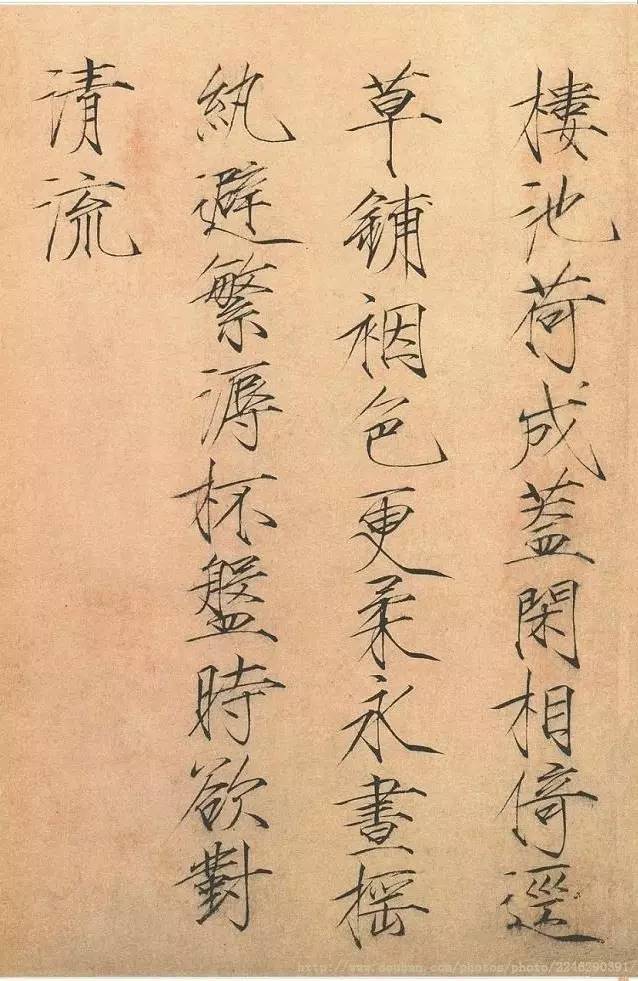 樓池荷成蓋閑相倚逕
草鋪裀色更柔永晝搖
紈避繁溽杯盤時欲對
清流
http://www.douban.com/photos/photo/2246290391/